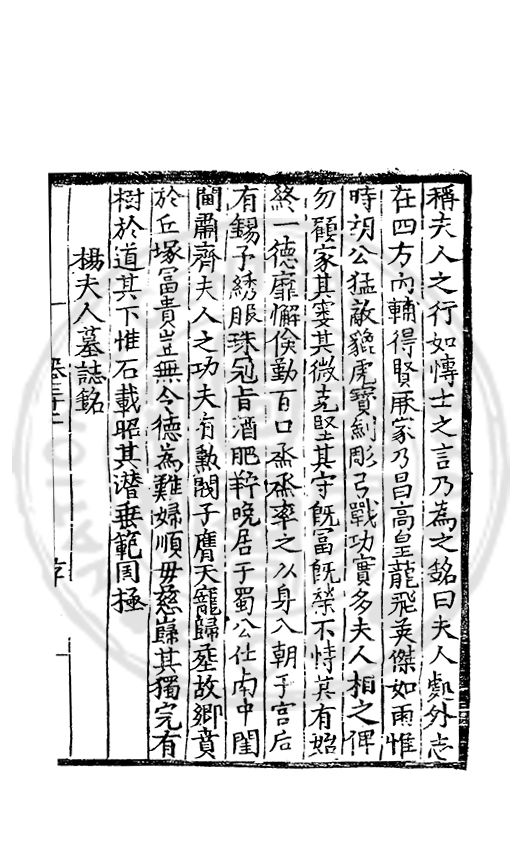 稱夫人之行如慱士之言乃為之銘曰夫人處外志
在四方內輔得賢厥家乃昌高皇龍飛英傑如雨惟
時胡公猛敵貔虎寶劍彫弓戰功實多夫人相之俾
勿顧家其窶其微克堅其守既冨既榮不恃其有始
終一德靡懈倹勤百口烝烝率之以身入朝于宫后
有錫予綉服珠冠旨酒肥羜晚居于蜀公仕南中閨
閫肅齊夫人之功夫有勲閥子膺天寵歸塟故鄉賁
於丘塚冨貴豈無令德為難婦順毋慈歸其獨完有
樹於道其下惟石載昭其潜垂範罔極
楊夫人墓誌銘